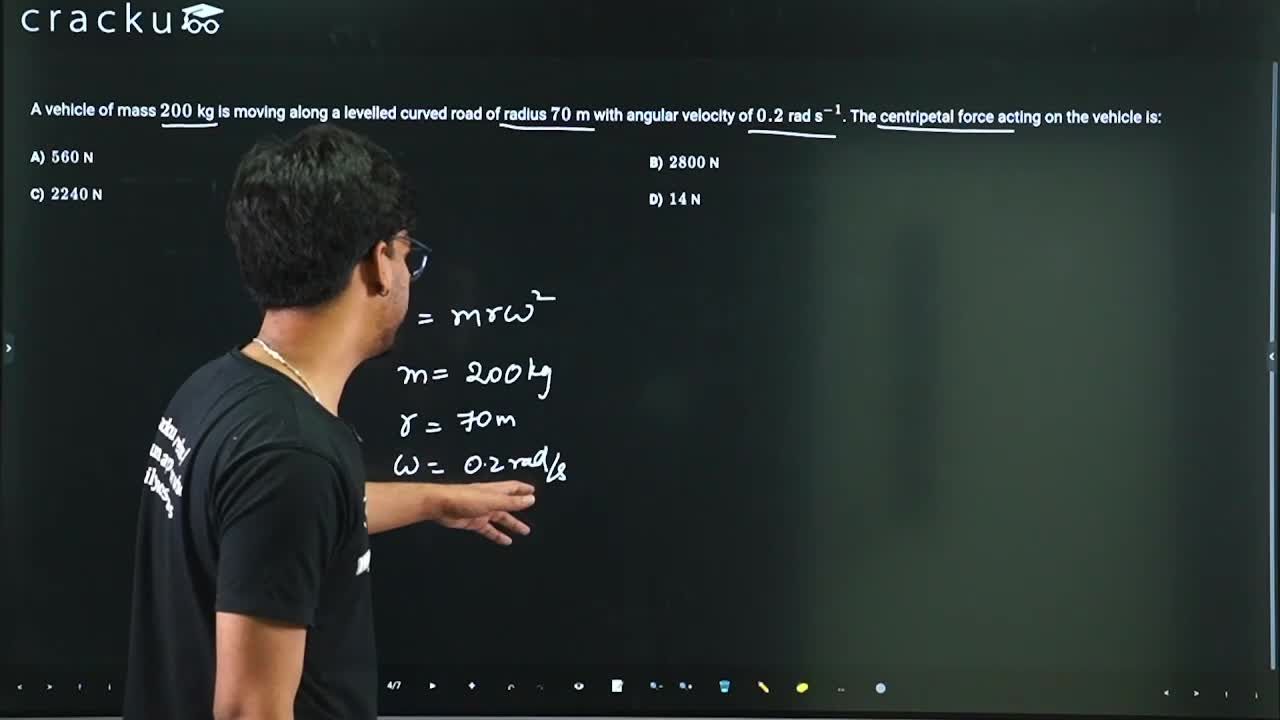 cracku
A vehicle of mass 200 kg is moving along a levelled curved road of radius 70 m with angular velocity of 0.2 rad s⁻¹. The centripetal force acting on the vehicle is:
A) 560 N
B) 2800 N
C) 2240 N
D) 14 N
= mrω²
m = 200 kg
r = 70m
ω = 0.2 rad/s
4/7